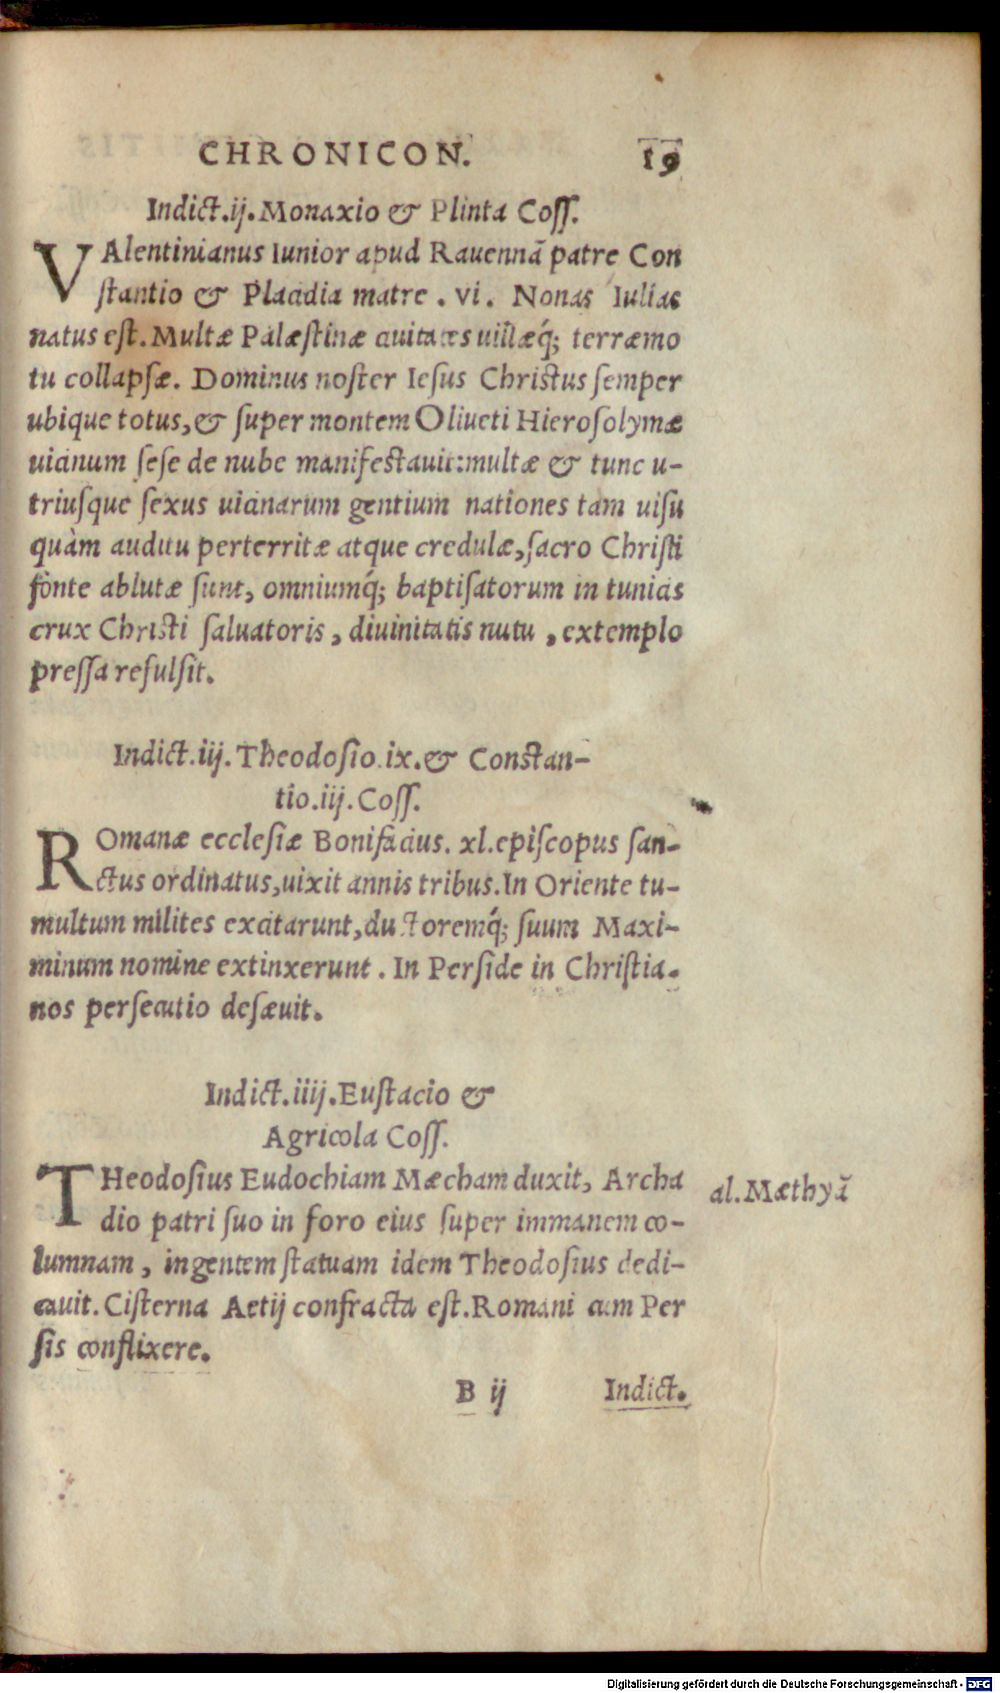 CHRONICON. 19
Indict.ij. Monaxio & Plinta Coſſ.
VAlentinianus Iunior apud Rauennã patre Con
ſtantio & Placidia matre . vi. Nonas Iulias
natus eſt. Multæ Palæſtinæ ciuitates uillæq́; terræmo
tu collapſæ. Dominus noſter Ieſus Chriſtus ſemper
ubique totus, & ſuper montem Oliueti Hieroſolymæ
uicinum ſeſe de nube manifeſtauit: multæ & tunc u-
triuſque ſexus uicinarum gentium nationes tam uiſu
quàm auditu perterritæ atque credulæ, ſacro Chriſti
fonte ablutæ ſunt, omniumq́; baptiſatorum in tunicis
crux Chriſti ſaluatoris, diuinitatis nutu, extemplo
preſſa refulſit.
Indict.iij. Theodoſio ix. & Conſtan-
tio.iij. Coſſ.
ROmanæ eccleſiæ Bonifacius. xl. epiſcopus ſan-
ctus ordinatus, uixit annis tribus. In Oriente tu-
multum milites excitarunt, ductoremq́; ſuum Maxi-
minum nomine extinxerunt. In Perſide in Chriſtia-
nos perſecutio deſæuit.
Indict.iiij. Euſtacio &
Agricola Coſſ.
THeodoſius Eudochiam Mæcham duxit, Archa
dio patri ſuo in foro eius ſuper immanem co-
lumnam, ingentem ſtatuam idem Theodoſius dedi-
cauit. Ciſterna Aetij confracta eſt. Romani cum Per
ſis conflixere.
al. Mæthyã
B ij Indict.
Digitalisierung gefördert durch die Deutsche Forschungsgemeinschaft - DFG